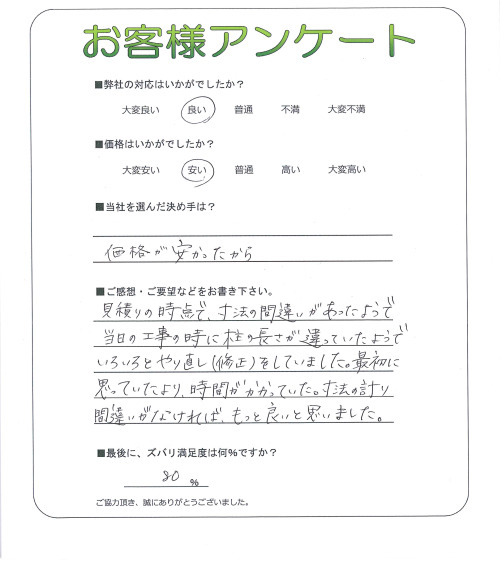 お客様アンケート
■弊社の対応はいかがでしたか？
大変良い 良い 普通 不満 大変不満
■価格はいかがでしたか？
大変安い 安い 普通 高い 大変高い
■当社を選んだ決め手は？
価格が安かったから
■ご感想・ご要望などをお書き下さい。
見積りの時点で、寸法の間違いがあったようで
当日の工事の時に柱の長さが違っていたようで
いろいろとやり直し(修正)をしていました。最初に
思っていたより、時間がかかっていた。寸法の計り
間違いがなければ、もっと良いと思いました。
■最後に、ズバリ満足度は何％ですか？
80 %
ご協力頂き、誠にありがとうございました。